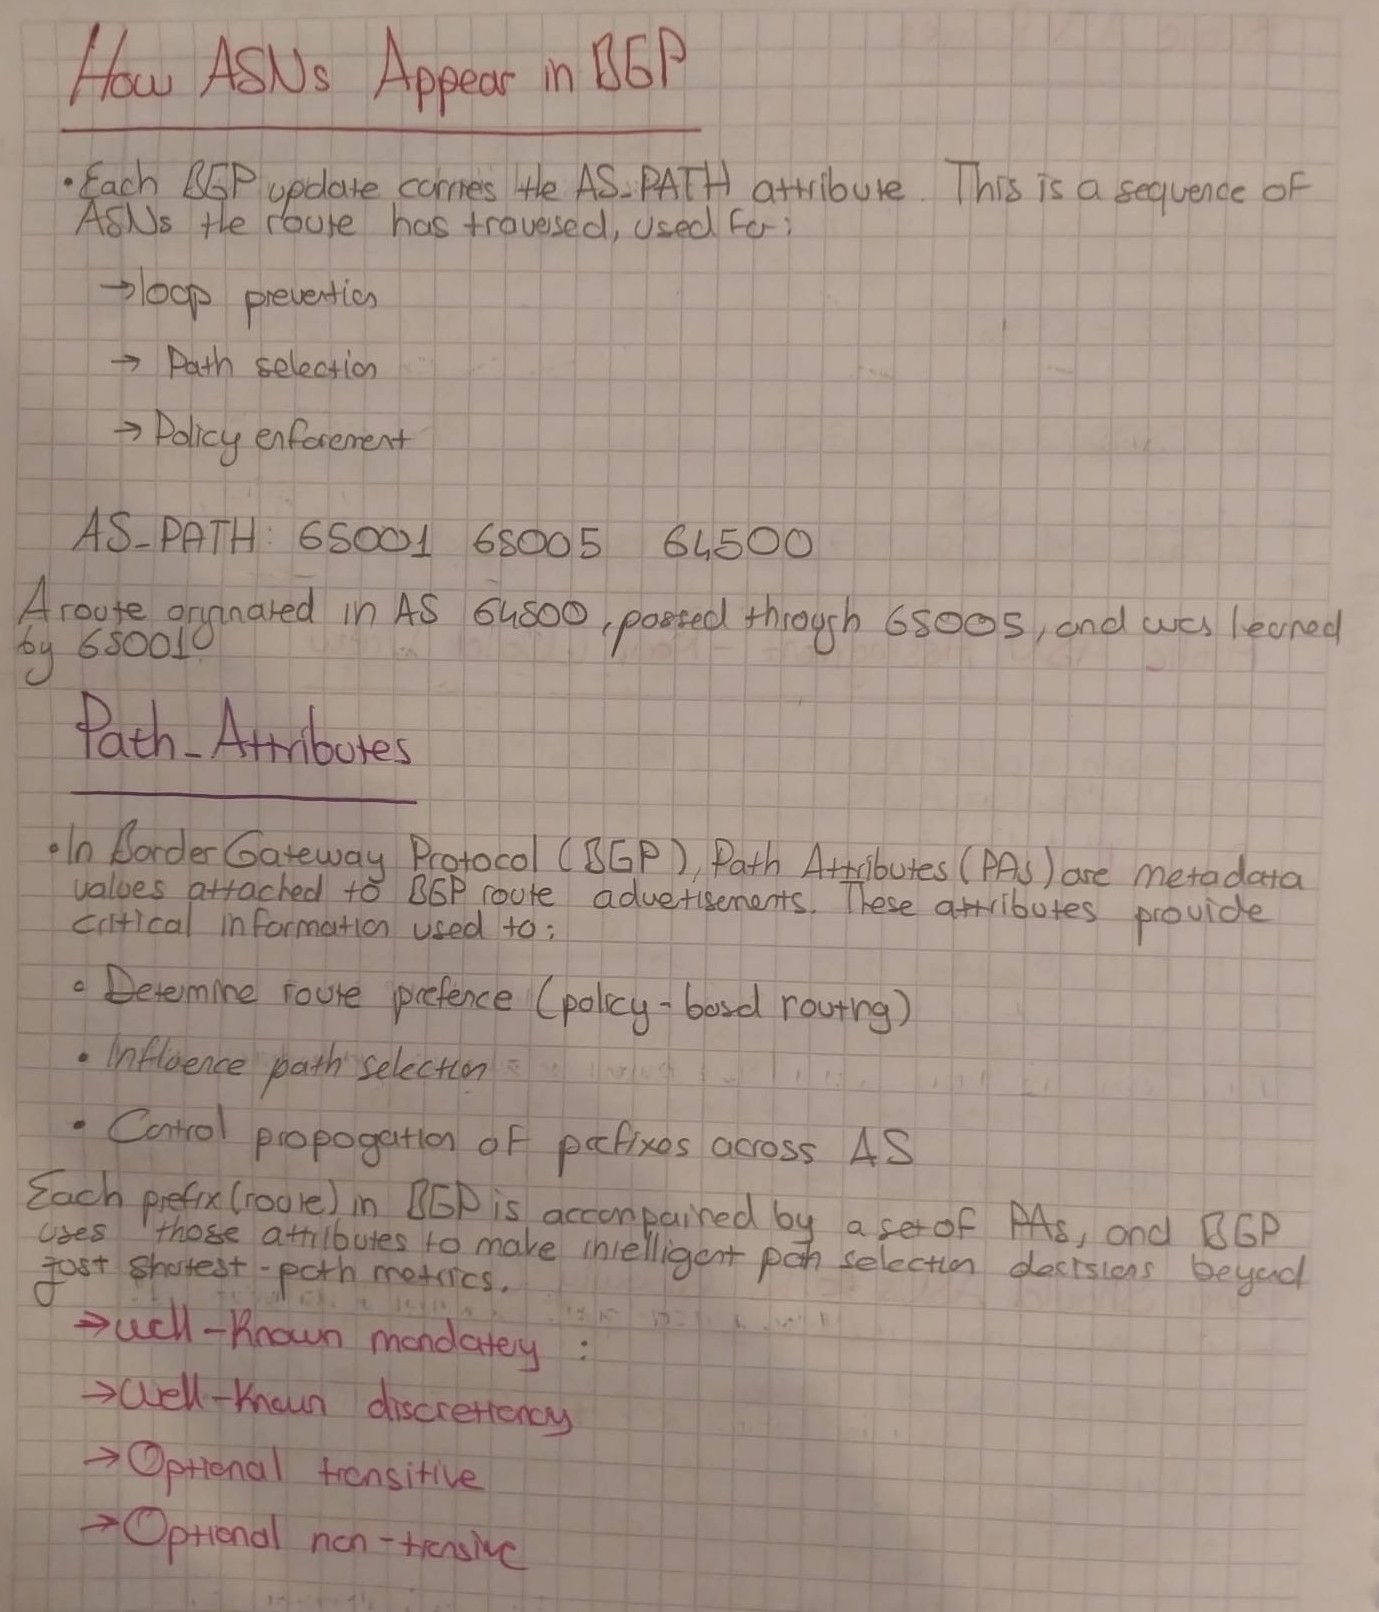 How ASNs Appear in BGP
• Each BGP update carries the AS_PATH attribute. This is a sequence of
ASNs the route has travesed, used for:
→ loop prevention
→ Path selection
→ Policy enforement
AS_PATH: 65001 65005 64500
A route originated in AS 64500, passed through 65005, and was learned
by 65001
Path_Attributes
• In Border Gateway Protocol (BGP), Path Attributes (PAs) are metadata
values attached to BGP route advertisements. These attributes provide
critical information used to:
• Determine route prefence (policy-basd routing)
• Influence path selection
• Control propogation of prefixes across AS
Each prefix (route) in BGP is accompained by a set of PAs, and BGP
uses those attributes to make intelligent path selection decisions beyond
just shotest-path metrics.
→ well-known mandatory :
→ Well-known discretionary
→ Optional transitive
→ Optional non-transive